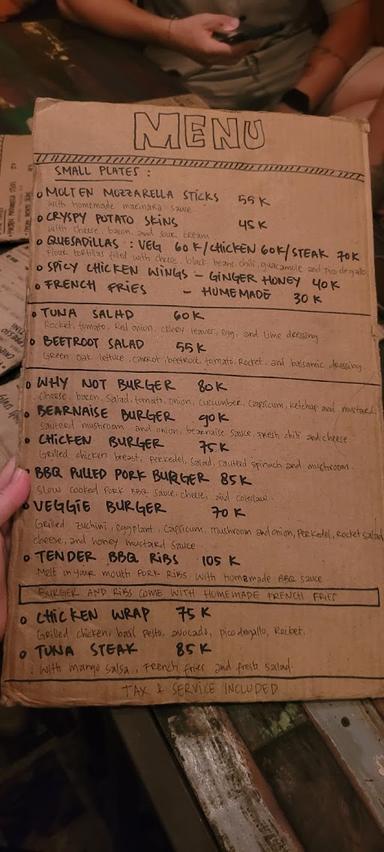 MENU
SMALL PLATES :
MOLTEN MOZZARELLA STICKS 55 K
with homemade marinara sauce
CRYSPY POTATO SKINS 45 K
with cheese, bacon, and sour cream
QUESADILLAS : VEG 60 K/CHICKEN 60K/STEAK 70K
Flour tortillas filled with cheese, black beans, chili, guacamole and pico de gallo
SPICY CHICKEN WINGS - GINGER HONEY 40 K
FRENCH FRIES - HOMEMADE 30 K
TUNA SALAD 60 K
Rocket, tomato, Red onion, celery leaves, egg, and Lime dressing
BEETROOT SALAD 55 K
Green oak lettuce, carrot, beetroot, tomato, Rocket, and balsamic dressing
WHY NOT BURGER 80 K
cheese, bacon, Salad, tomato, onion, cucumber, capsicum, ketchup and mustard
BEARNAISE BURGER 90 K
sauteed mushroom and onion, bearnaise sauce, fresh chili and cheese
CHICKEN BURGER 75 K
Grilled chicken breast, Perkedel, Salad, sauted spinach and mushroom
BBQ PULLED PORK BURGER 85 K
Slow cooked Pork BBQ sauce, cheese, and coleslaw
VEGGIE BURGER 70 K
Grilled zuchini, eggplant, capsicum, mushroom and onion, Perkedel, Rocket salad
cheese, and honey mustard sauce
TENDER BBQ RIBS 105 K
Melt in your mouth PORK RIBS with homemade BBQ sauce
BURGER AND RIBS COME WITH HOMEMADE FRENCH FRIES
CHICKEN WRAP 75 K
Grilled chicken, basil Pesto, avocado, pico degallo, Rocket.
TUNA STEAK 85 K
with mango salsa, French fries and fresh salad
TAX & SERVICE INCLUDED